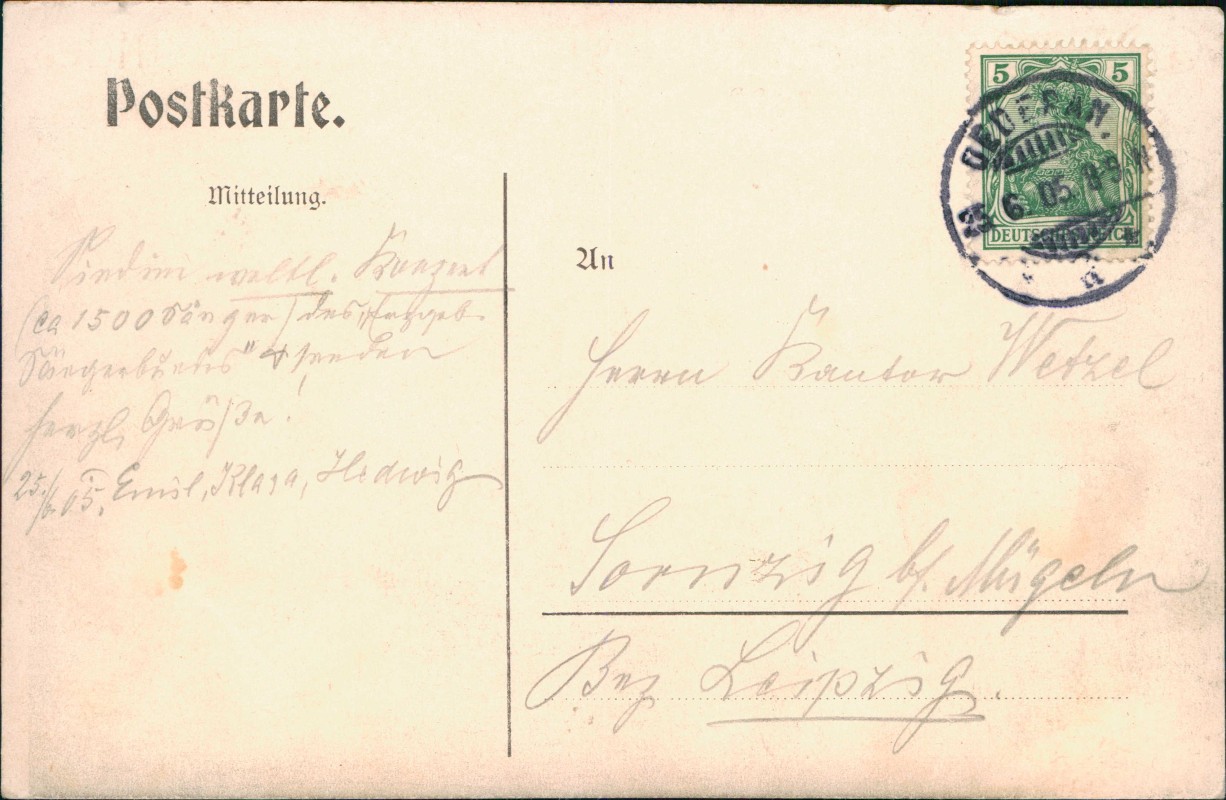 Postkarte.
Mitteilung.
Sind im weltl. Konzert
(ca 1500 Sänger) des „Erzgeb.
Sängerbunds" & senden
herzl. Grüße!
25./6.05. Emil, Klara, Hedwig
An
Herrn Kantor Wetzel
Sornzig b/ Mügeln
Bez Leipzig.
5 5
DEUTSCHES REICH
OEDERAN.
25 6. 05. 8-9 N
a